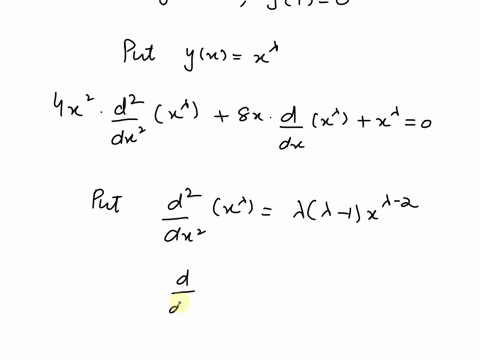 Put y(x) = x^λ
4x² · d²/dx² (x^λ) + 8x · d/dx (x^λ) + x^λ = 0
Put d²/dx² (x^λ) = λ(λ-1) x^(λ-2)
d/d